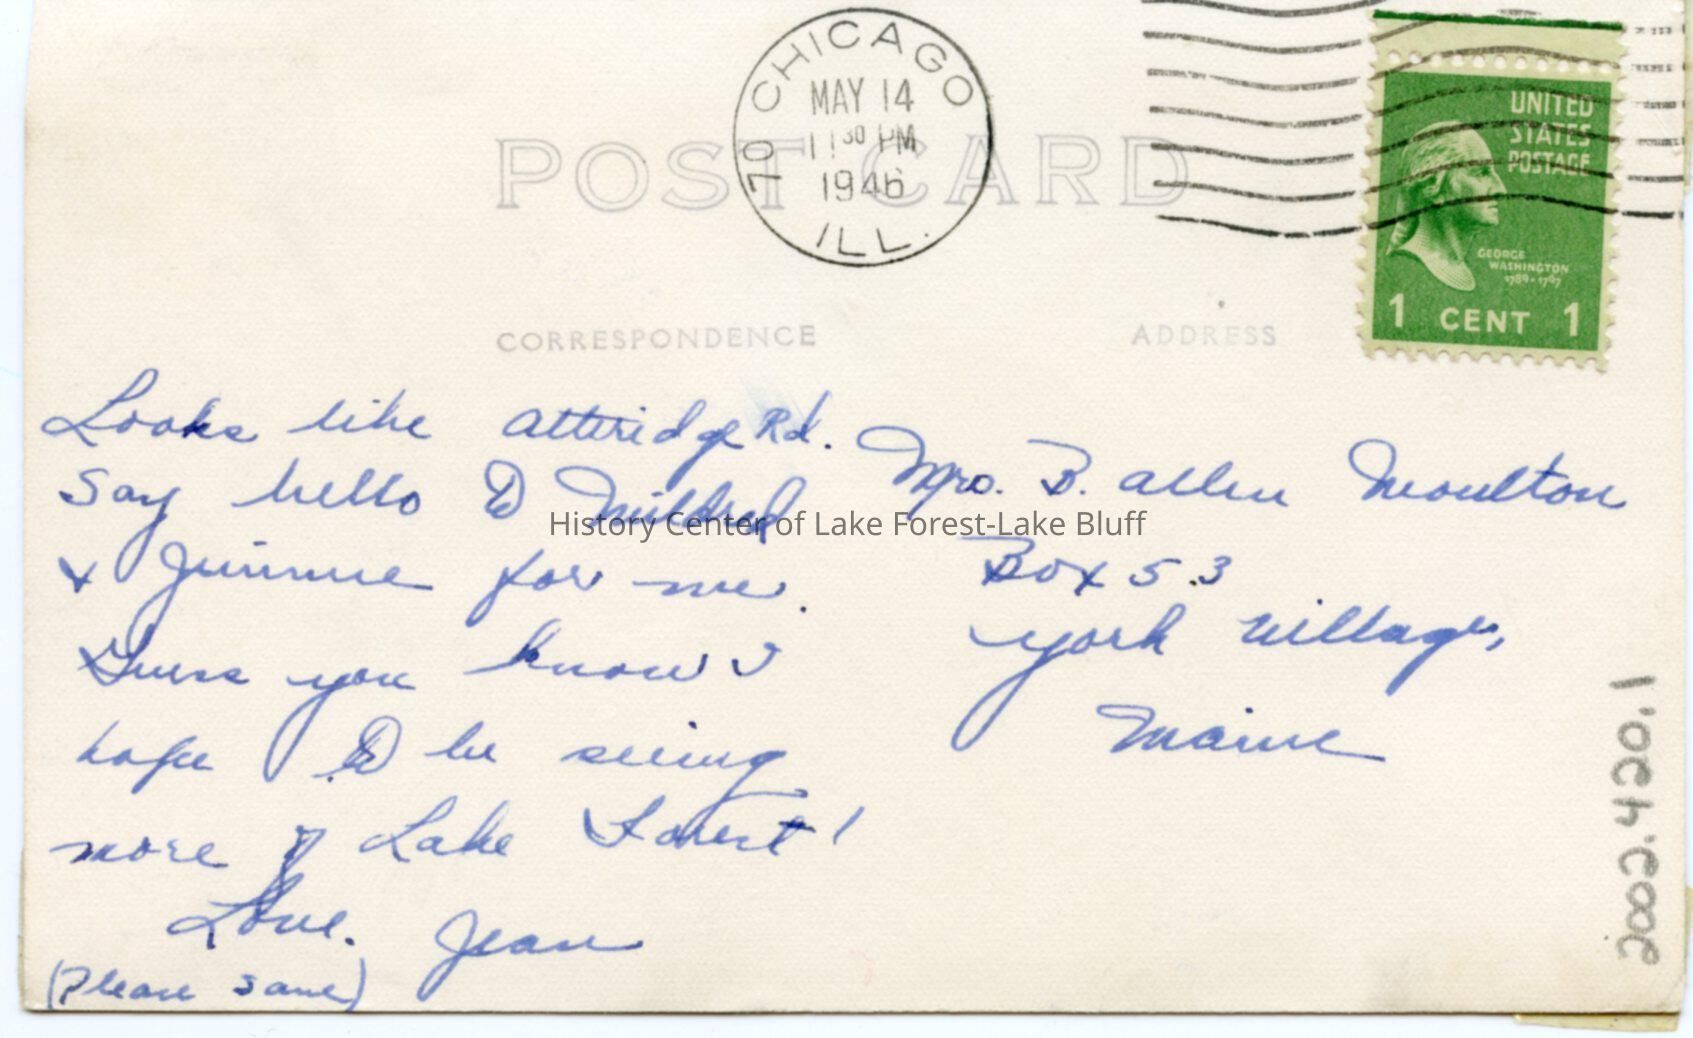 70 CHICAGO ILL.
MAY 14
11 30 PM
1946
UNITED
STATES
POSTAGE
GEORGE
WASHINGTON
1789-1797
1 CENT 1
POST CARD
CORRESPONDENCE
ADDRESS
Looks like Atteridge Rd.
Say hello to Mildred
& Jimmie for me.
Guess you know I
hope to be seeing
more of Lake Forest!
Love. Jean
(Please save)
Mrs. B. Allen Moulton
Box 53
York Village,
Maine
History Center of Lake Forest-Lake Bluff
2002.420.1